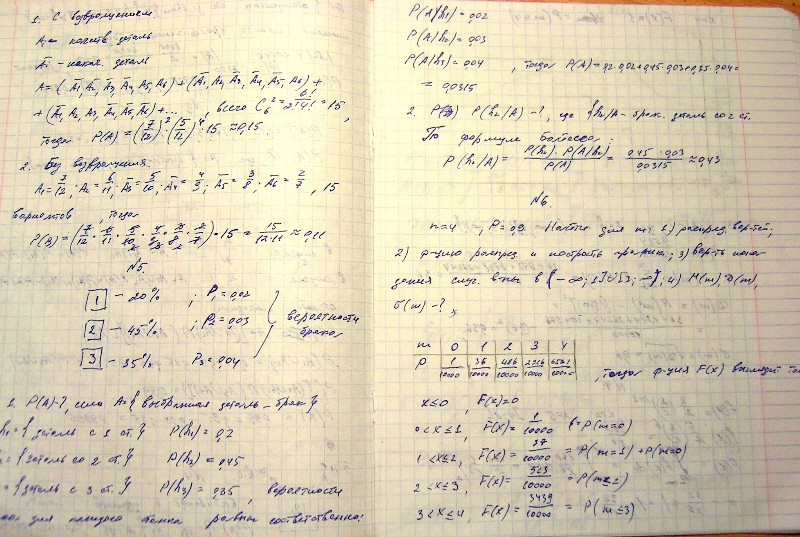 1. С возвращением
A₁ = качеств. деталь
A̅₁ - некач. деталь
A = (A̅₁, A₂, A₃, A₄, A₅, A₆) + (A₁, A₂, A₃, A₄, A₅, A₆) +
+ (A₁, A₂, A₃, A₄, A₅, A₆) + ... всего C₆² = 6!/2!4! = 15,
тогда P(A) = (7/12)² · (5/12)⁴ · 15 ≈ 0,15
2. Без возвращения.
A₁ = 7/12, A₂ = 6/11; A̅₃ = 5/10; A̅₄ = 4/9; A̅₅ = 3/8; A̅₆ = 2/7, 15
вариантов, тогда
P(B) = (7/12 · 6/11 · 5/10 · 4/9 · 3/8 · 2/7) · 15 = 15/12·11 ≈ 0,11
№5.
1 – 20% ; P₁ = 0,02
2 – 45% ; P₂ = 0,03 вероятности
брака
3 – 35% P₃ = 0,04
1. P(A)-?, если A = { выбранная деталь – брак }
h₁ = { деталь с 1 ст. } P(h₁) = 0,2
= { деталь со 2 ст. } P(h₂) = 0,45
= { деталь с 3 ст. } P(h₃) = 0,35, вероятности
для каждого равны соответственно:
P(A/h₁) = 0,02
P(A/h₂) = 0,03
P(A/h₃) = 0,04, тогда P(A) = 0,2·0,02+0,45·0,03+0,35·0,04=
= 0,0315
2. P(h₂/A) - ?, где {h₂/A - браж. деталь со 2 ст.
По формуле Байесса:
P(h₂/A) = P(h₂) · P(A/h₂)/P(A) = 0,45 · 0,03/0,0315 ≈ 0,43
№6.
n=4, P=0,9 Найти для m: 1) распред. вер-тей;
2) ф-цию распред. и построить график; 3) вер-ть попа-
дания случ. в-ны в {-∞; 1]∪[3; ∞}, 4) M(m), D(m),
σ(m) - ?
m 0 1 2 3 4
P 1/10000 36/10000 486/10000 2916/10000 6561/10000, тогда ф-ция F(x) выглядит
x≤0, F(x)=0
0<x≤1, F(x) = 1/10000 = P(m=0)
1<x≤2, F(x) = 37/10000 = P(m=1)+P(m=0)
2<x≤3, F(x) = 523/10000 = P(m≤2)
3<x≤4, F(x) = 3439/10000 = P(m≤3)